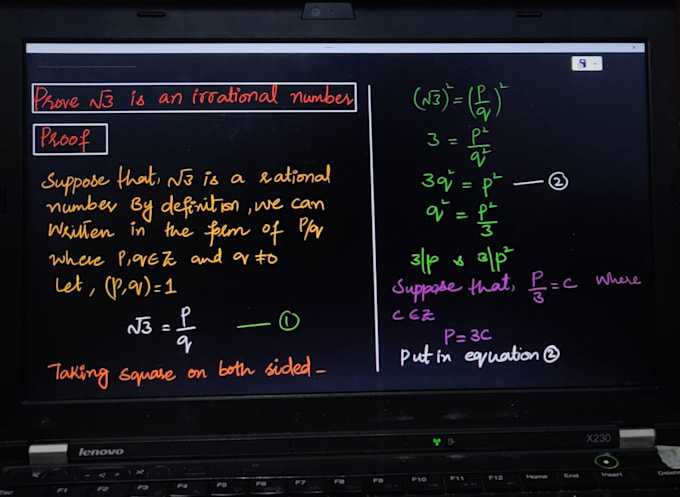 Prove √3 is an irrational number
Proof
Suppose that, √3 is a rational
number By definition, we can
Written in the form of P/q
where P,q∈Z and q≠0
Let, (P,q)=1
√3 = P/q — ①
Taking square on both sided -
(√3)² = (P/q)²
3 = P²/q²
3q² = P² — ②
q² = P²/3
3|P & 3|P²
Suppose that, P/3 = C where
C∈Z
P=3C
Put in equation ②
lenovo
X230
F1
F2
F3
F4
F5
F6
F7
F8
F9
F10
F11
F12
Home
End
Insert
Delete